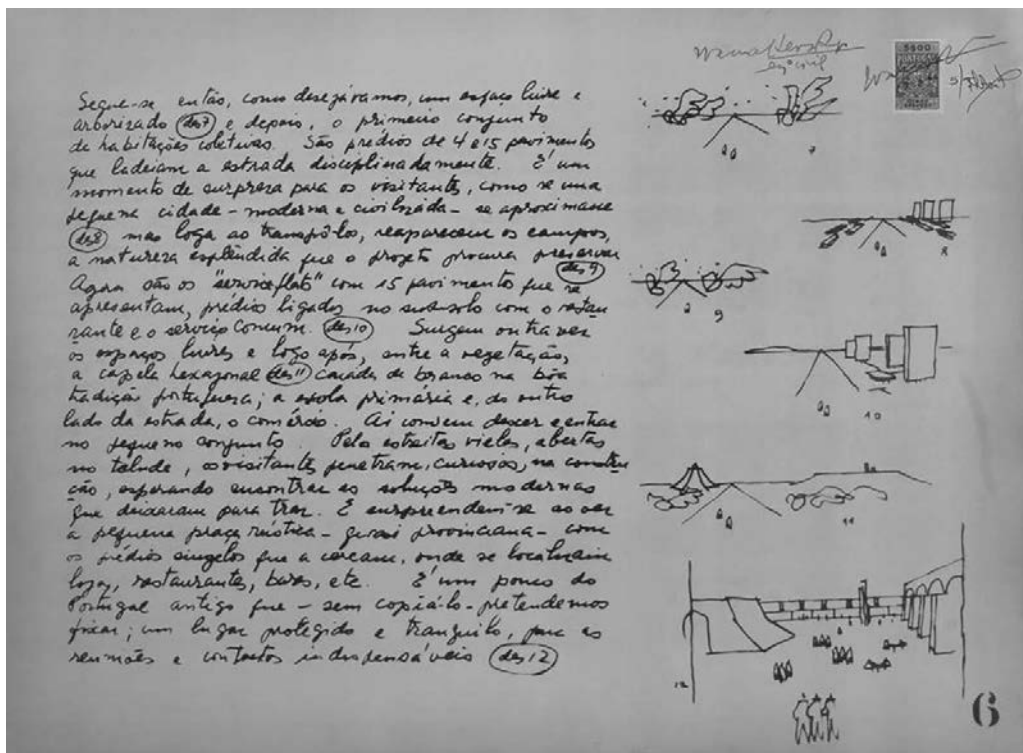 Segue-se, então, como desejávamos, um espaço livre e
arborizado (des 7) e depois, o primeiro conjunto
de habitações coletivas. São prédios de 4 e 15 pavimentos
que ladeiam a estrada disciplinadamente. É um
momento de surpreza para os visitantes, como se uma
pequena cidade - moderna e civilizada - se aproximasse
(des 8) mas logo ao transpô-los, reaparecem os campos,
a natureza esplêndida que o projeto procura preservar
(des 9)
Agora são os "service flats" com 15 pavimentos que se
apresentam, prédios ligados no subsolo com o restau
rante e o serviço comum. (des 10) Surgem outra vez
os espaços livres e logo após, entre a vegetação,
a capela hexagonal (des 11) caiada de branco na bôa
tradição portuguesa; a escola primária e, do outro
lado da estrada, o comércio. Ai convem descer e entrar
no pequeno conjunto. Pelas estreitas vielas, abertas
no talude, os visitantes penetram, curiosos, na constru
ção, esperando encontrar as soluções modernas
que deixaram para traz. E surpreendem-se ao ver
a pequena praça rústica - quasi provinciana - com
os prédios singelos que a cercam, onde se localizam
lojas, restaurantes, bares, etc. É um pouco do
Portugal antigo que - sem copiá-lo - pretendemos
fixar; um lugar protegido e tranquilo, para as
reuniões e contactos indispensáveis (des 12)
engº civil
7
8
9
10
11
12
6